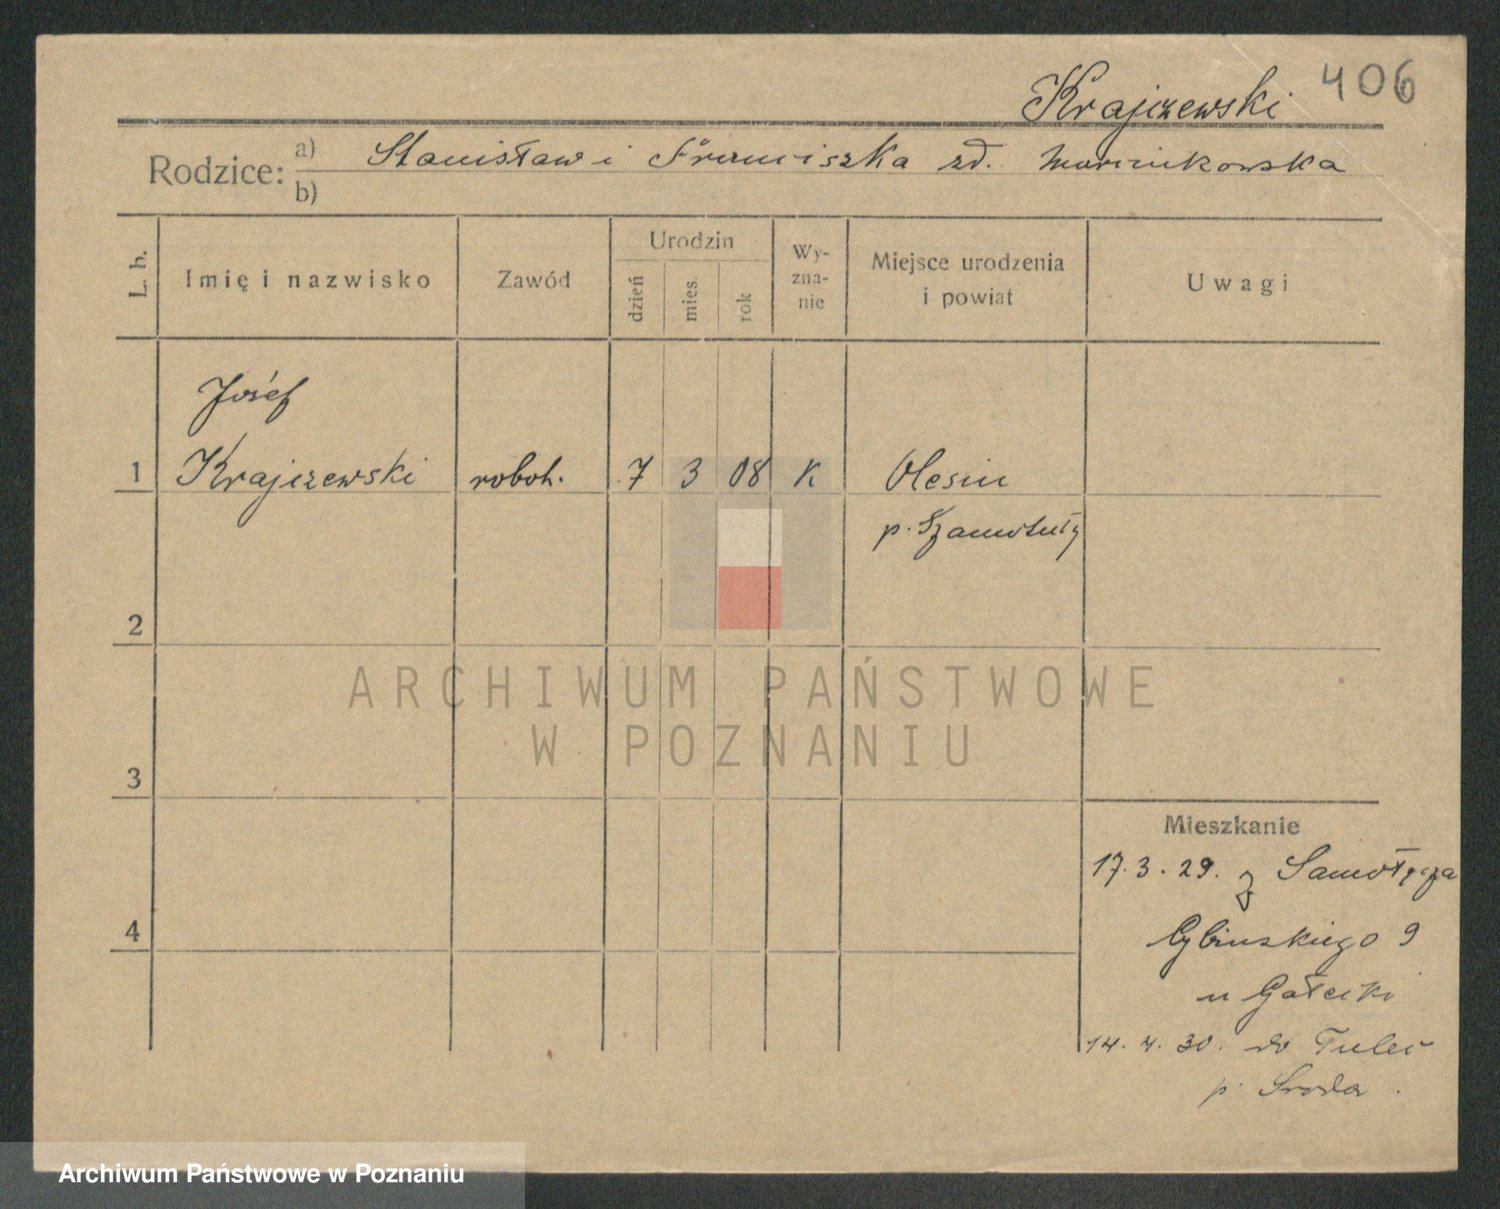 Krajczewski 406
Rodzice: a) Stanisław i Franciszka zd. Marcinkowska
b)
L. b. Imię i nazwisko Zawód Urodzin dzień mies. rok Wy-zna-nie Miejsce urodzenia i powiat Uwagi
Józef
1 Krajczewski robotn. 7 3 08 K Olesin
p. Szamotuły
2
ARCHIWUM PAŃSTWOWE
W POZNANIU
3
Mieszkanie
17.3.29. z
4
Cybińskiego 9
u
14.4.30. do Tulec
p. Środa.
Archiwum Państwowe w Poznaniu